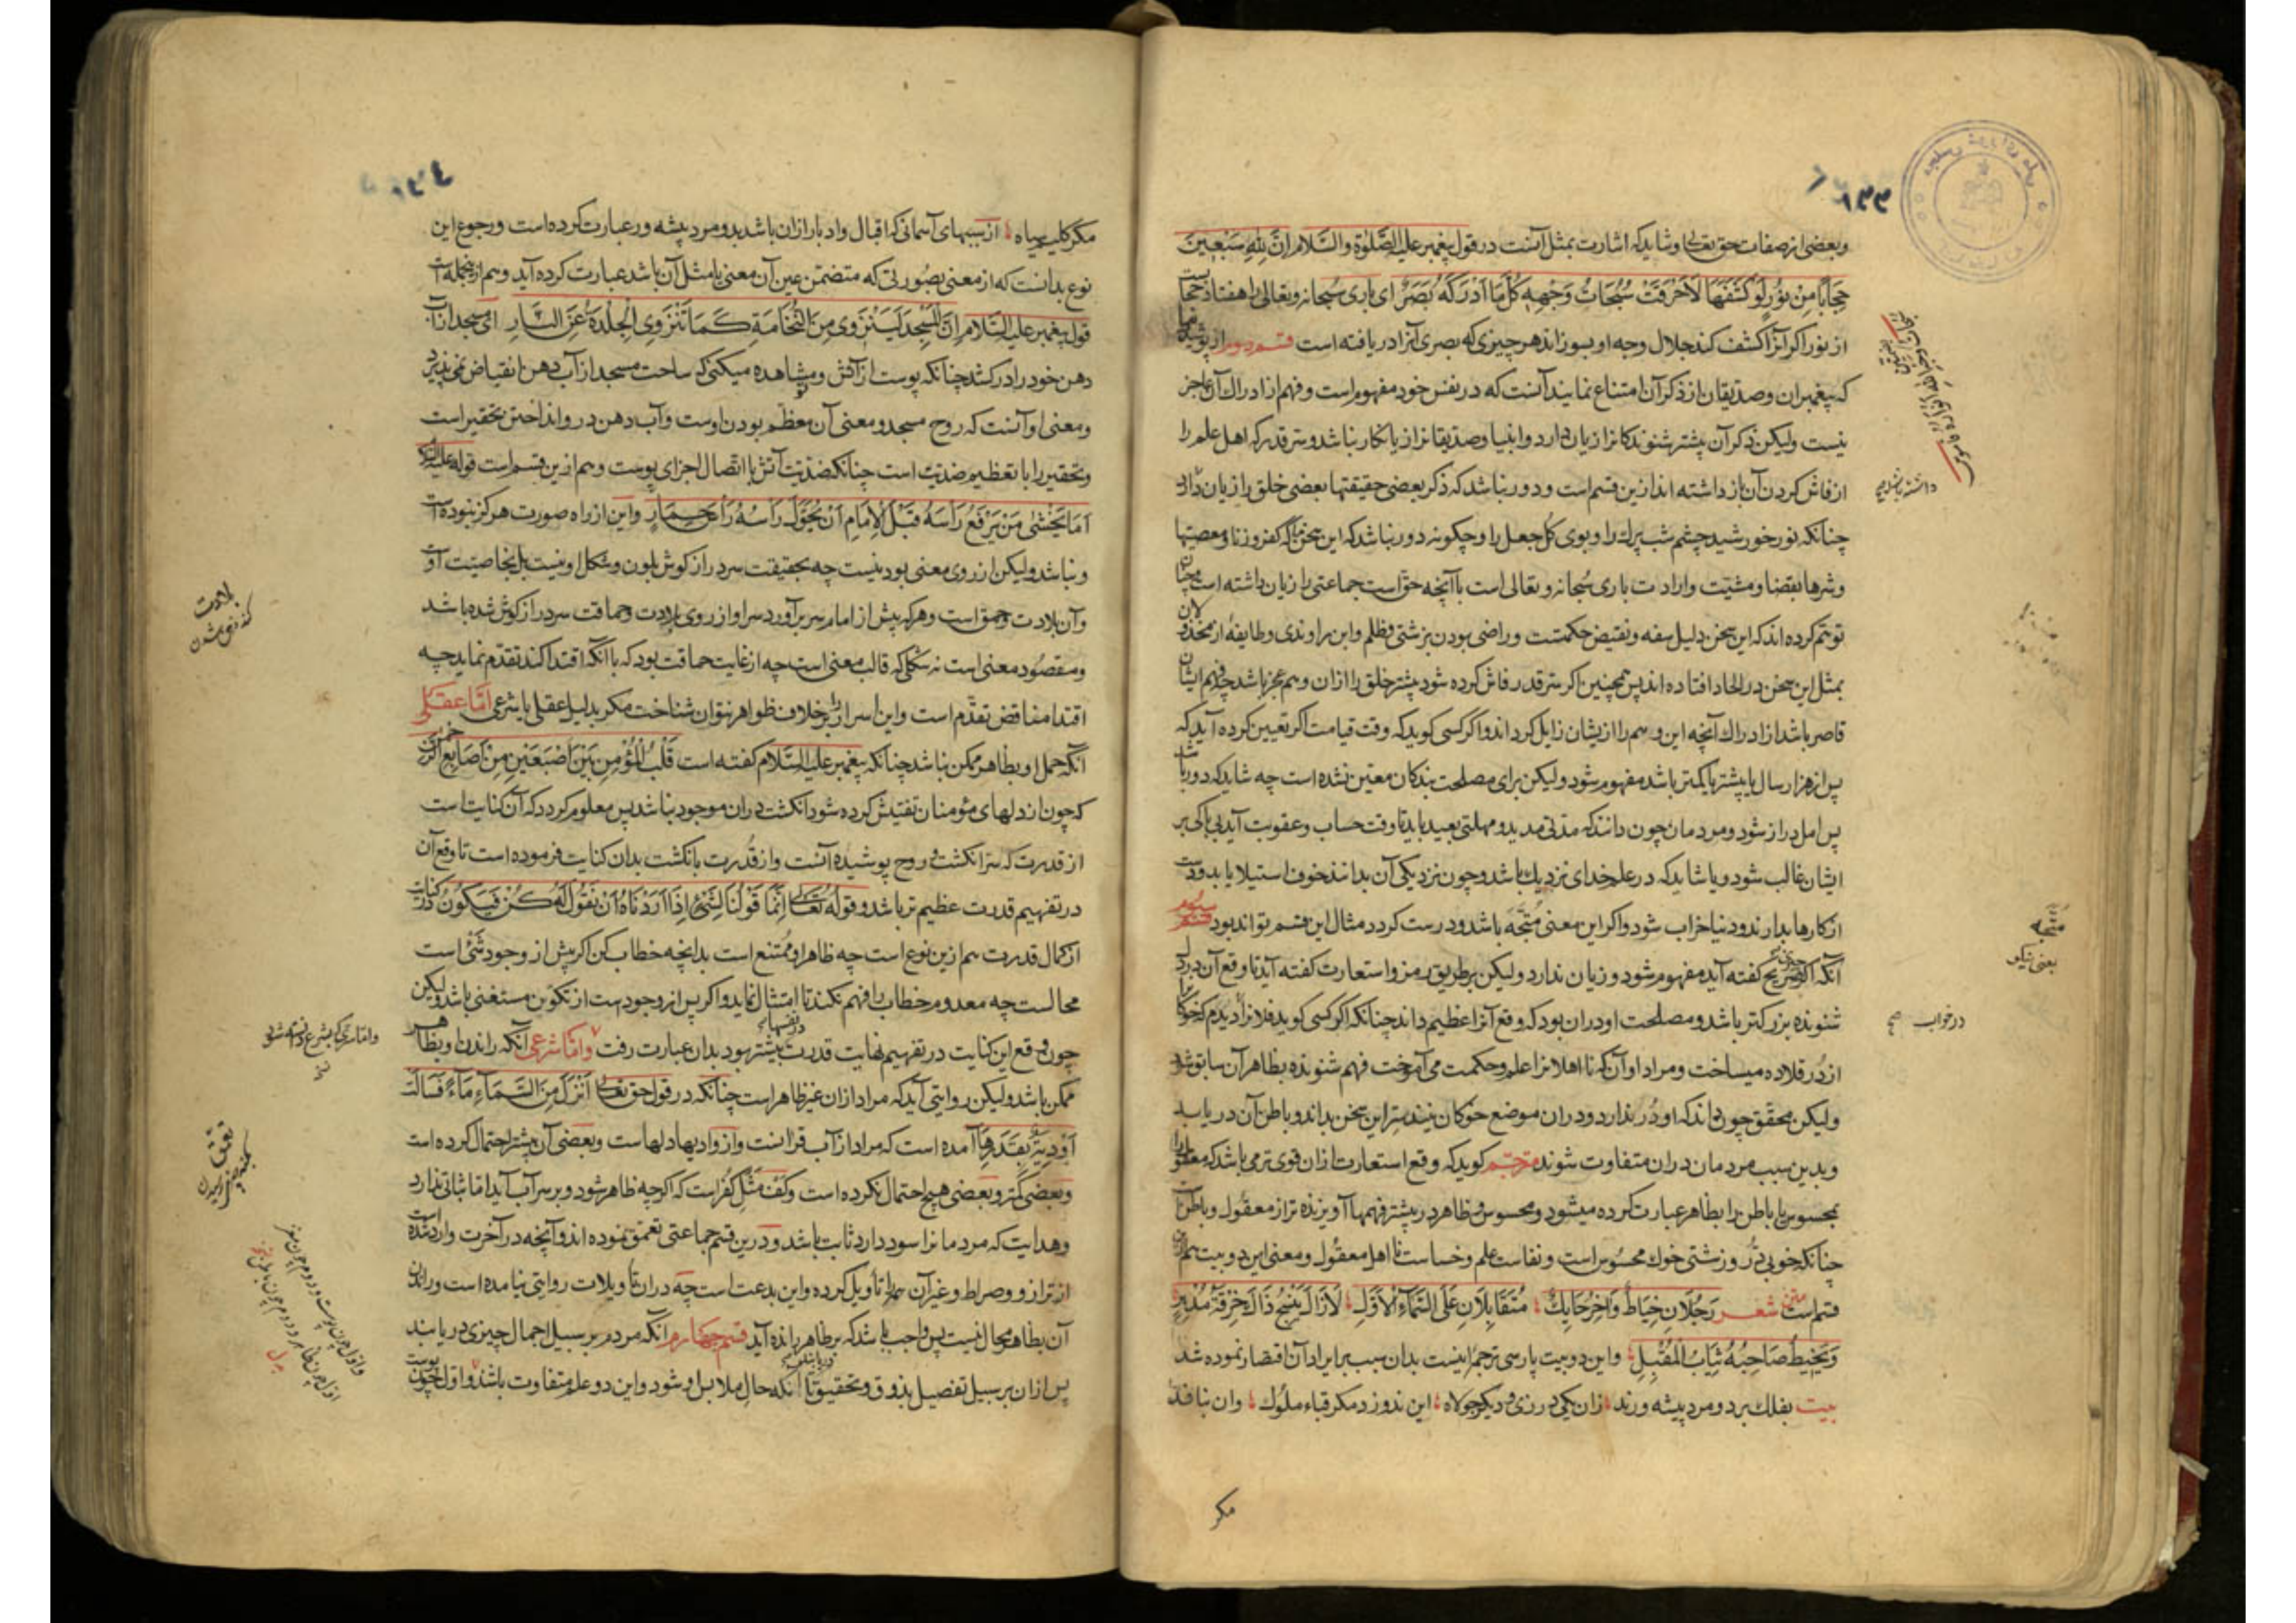 ۱۳۳
وبعضی از صفات حق تعالی وشاید که اشارت بمثل آنست در قول پیغمبر علیه الصّلوة والسّلام اِنَّ لِلّهِ سَبْعِینَ
حِجَابًا مِنْ نُورٍ لَوْ کَشَفَهَا لَاَحْرَقَتْ سُبُحَاتُ وَجْهِهِ کُلَّ مَا اَدْرَکَهُ بَصَرُهُ ای باری سبحانه وتعالی را هفتاد حجابست
از نور اکر آنرا کشف کند جلال وجه او بسوزاند هر چیزی که بصری آنرا دریافته است قسم دوم از پوشیدنیها
که پیغمبران وصدیقان از ذکر آن امتناع نمایند آنست که در نفس خود مفهوم است وفهم از ادراک آن عاجز
نیست ولیکن ذکر آن بیشتر شنوندکانرا زیان دارد وانبیا وصدیقانرا زیانکار نباشد وسر قدر که اهل علم را
از فاش کردن آن باز داشته اند ازین قسم است ودور نباشد که ذکر بعضی حقیقتها بعضی خلق را زیان دارد
چنانکه نور خورشید چشم شب پرك را وبوی کل جعل را وچکونه دور نباشد که این سخن ما که کفر وزنا ومعصیتها
وشرها بقضا ومشیّت وارادت باری سُبحانه وتعالی است با آنچه حق است جماعتی را زیان داشته است چنان
توهّم کرده اند که این سخن دلیل سفه ونقیض حکمتست وراضی بودن بزشتی وظلم وابن راوندی وطایفهٔ از مخذولان
بمثل این سخن در الحاد افتاده اند پس همچنین اکر سر قدر فاش کرده شود بیشتر خلق را ازان وهم عجز باشد چه فهم ایشان
قاصر باشد از ادراك آنچه این وهم را از یشان زایل کرداند واکر کسی کوید که وقت قیامت اکر تعیین کرده آید که
پس از هزار سال یا بیشتر یا کمتر باشد مفهوم شود ولیکن برای مصلحت بندکان معیّن نشده است چه شاید که دور باشد
پس امل دراز شود ومردمان چون دانند که مدتی مدید ومهلتی بعید باید تا وقت حساب وعقوبت آید بی باکی بر
ایشان غالب شود ویا شاید که در علم خدای نزدیك باشد وچون نزدیکی آن بدانند خوف استیلا یابد ودست
از کارها بدارند ودنیا خراب شود واکر این معنی متّجه باشد ودرست کردد مثال این قسم تواند بود قسم سیوم
آنکه اکر بصریح کفته آید مفهوم شود وزیان ندارد ولیکن بر طریق رمز واستعارت کفته آید تا وقع آن در دل
شنونده بزرکتر باشد ومصلحت او دران بود که وقع آنرا عظیم داند چنانکه اکر کسی کوید فلانرا دیدم که خوکانرا
از در قلاده میساخت ومراد او آن که نا اهلانرا علم وحکمت می آموخت فهم شنونده بظاهر آن سابق شود
ولیکن محقّق چون داند که او در ندارد ودران موضع خوکان نیند سرّ این سخن بداند وباطن آن دریابد
وبدین سبب مردمان دران متفاوت شوند مترجم کوید که وقع استعارت ازان قوی تر می باشد که معقول را
بمحسوس یا باطن را بظاهر عبارت کرده میشود ومحسوس وظاهر در بیشتر فهمها آویزنده تر از معقول وباطن است
چنانکه خوبی دُر وزشتی خوك محسوس است ونفاست علم وخساست نا اهل معقول ومعنی این دو بیت هم ازین
قسم است متن شعر رَجُلَانِ خَیَّاطٌ وَآخَرُ حَایِكٌ مُتَقَابِلَانِ عَلَی السَّمَاءِ الْاَوَّلِ لَا زَالَ یَنْسِجُ ذَاكَ خِرْقَةَ مُدْبِرٍ
وَیَخِیطُ صَاحِبُهُ ثِیَابَ الْمُقْبِلِ واین دو بیت پارسی ترجمه اینست بدان سبب بر ایراد آن اقتصار نموده شد
بیت بفلك بر دو مرد پیشه ورند زان یکی درزی ودیکر جولاه این ندوزد مکر قباء ملوك وان نبافد
مکر
متّجه
یعنی نیکو
در خواب صح
۱۳٤
مکر کلیم سیاه از سببهای آسمانی که اقبال وادبار ازان باشد بدو مرد پیشه ور عبارت کرده است ورجوع این
نوع بدانست که از معنی بصورتی که متضمّن عین آن معنی یا مثل آن باشد عبارت کرده آید وهم ازین جمله است
قول پیغمبر علیه السّلام اِنَّ الْمَسْجِدَ لَیَنْزَوِی مِنَ النُّخَامَةِ کَمَا تَنْزَوِی الْجِلْدَةُ عَنِ النَّارِ ای مسجد از آب
دهن خود را در کشد چنانکه پوست از آتش ومشاهده میکنی که ساحت مسجد از آب دهن انقباض نمی پذیرد
ومعنی او آنست که روح مسجد ومعنی آن معظّم بودن اوست وآب دهن در و انداختن تحقیر است
وتحقیر را با تعظیم ضدیت است چنانکه ضدّیّت آتش با اتّصال اجزای پوست وهم ازین قسم است قوله علیه السّلام
اَمَا یَخْشٰی مَنْ یَرْفَعُ رَأْسَهُ قَبْلَ الْاِمَامِ اَنْ یُحَوَّلَ رَأْسُهُ رَأْسَ حِمَارٍ واین از راه صورت هرکز نبوده است
ونباشد ولیکن از روی معنی بودنیست چه بحقیقت سر دراز کوش بلون وشکل او نیست بل بخاصیّت اوست
وآن بلادت وحمق است وهرکه پیش از امام سر بر آورد سر او از روی بلادت وحماقت سر دراز کوش شده باشد
ومقصود معنی است نه شکلی که قالب معنی است چه از غایت حماقت بود که با آنکه اقتدا کند تقدّم نماید چه
اقتدا مناقض تقدّم است واین اسرار بر خلاف ظواهر نتوان شناخت مکر بدلیل عقلی یا شرعی امّا عقلی
آنکه حمل او بظاهر ممکن نباشد چنانکه پیغمبر علیه السّلام کفته است قَلْبُ الْمُؤْمِنِ بَیْنَ اِصْبَعَیْنِ مِنْ اَصَابِعِ الرَّحْمٰنِ
که چون از دلهای مؤمنان تفتیش کرده شود انکشت دران موجود نباشد پس معلوم کردد که آن کنایت است
از قدرت که سرّ انکشت وروح پوشیده آنست واز قدرت بانکشت بدان کنایت فرموده است تا وقع آن
در تفهیم قدرت عظیم تر باشد وقوله تعالی اِنَّمَا قَوْلُنَا لِشَیْءٍ اِذَا اَرَدْنَاهُ اَنْ نَقُولَ لَهُ کُنْ فَیَکُونُ در کنایت
از کمال قدرت هم ازین نوع است چه ظاهر او ممتنع است بدانچه خطاب کن اکر پیش از وجود شَیْ است
محالست چه معدوم خطاب را فهم نکند تا امتثال نماید واکر پس از وجودست از تکوین مستغنی باشد ولیکن
چون وقع این کنایت در تفهیم نهایت قدرت بیشتر بود بدان عبارت رفت وامّا شرعی آنکه راندن او بظاهر
ممکن باشد ولیکن روایتی آید که مراد ازان غیر ظاهر است چنانکه در قول حق تعالی اَنْزَلَ مِنَ السَّمَاءِ مَاءً فَسَالَتْ
اَوْدِیَةٌ بِقَدَرِهَا آمده است که مراد از آب قرآنست واز وادیها دلهاست وبعضی آن بیشتر احتمال کرده است
وبعضی کمتر وبعضی هیچ احتمال نکرده است وکف مثل کفر است که اکرچه ظاهر شود وبر سر آب آید امّا ثباتی ندارد
وهدایت که مردمانرا سود دارد ثابت باشد ودرین قسم جماعتی تعمّق نموده اند وآنچه در آخرت وارد شده است
از ترازو وصراط وغیر آن همه را تأویل کرده واین بدعت است چه دران تأویلات روایتی نیامده است وراندن
آن بظاهر محال نیست پس واجب باشد که بر ظاهر رانده آید قسم چهارم آنکه مردم بر سبیل اجمال چیزی دریابند
پس ازان بر سبیل تفصیل بذوق وتحقیق تا آنکه حال ملابس او شود واین دو علم متفاوت باشند واوّل چون پوست
بلادت
کند فهم شدن
تعمّق